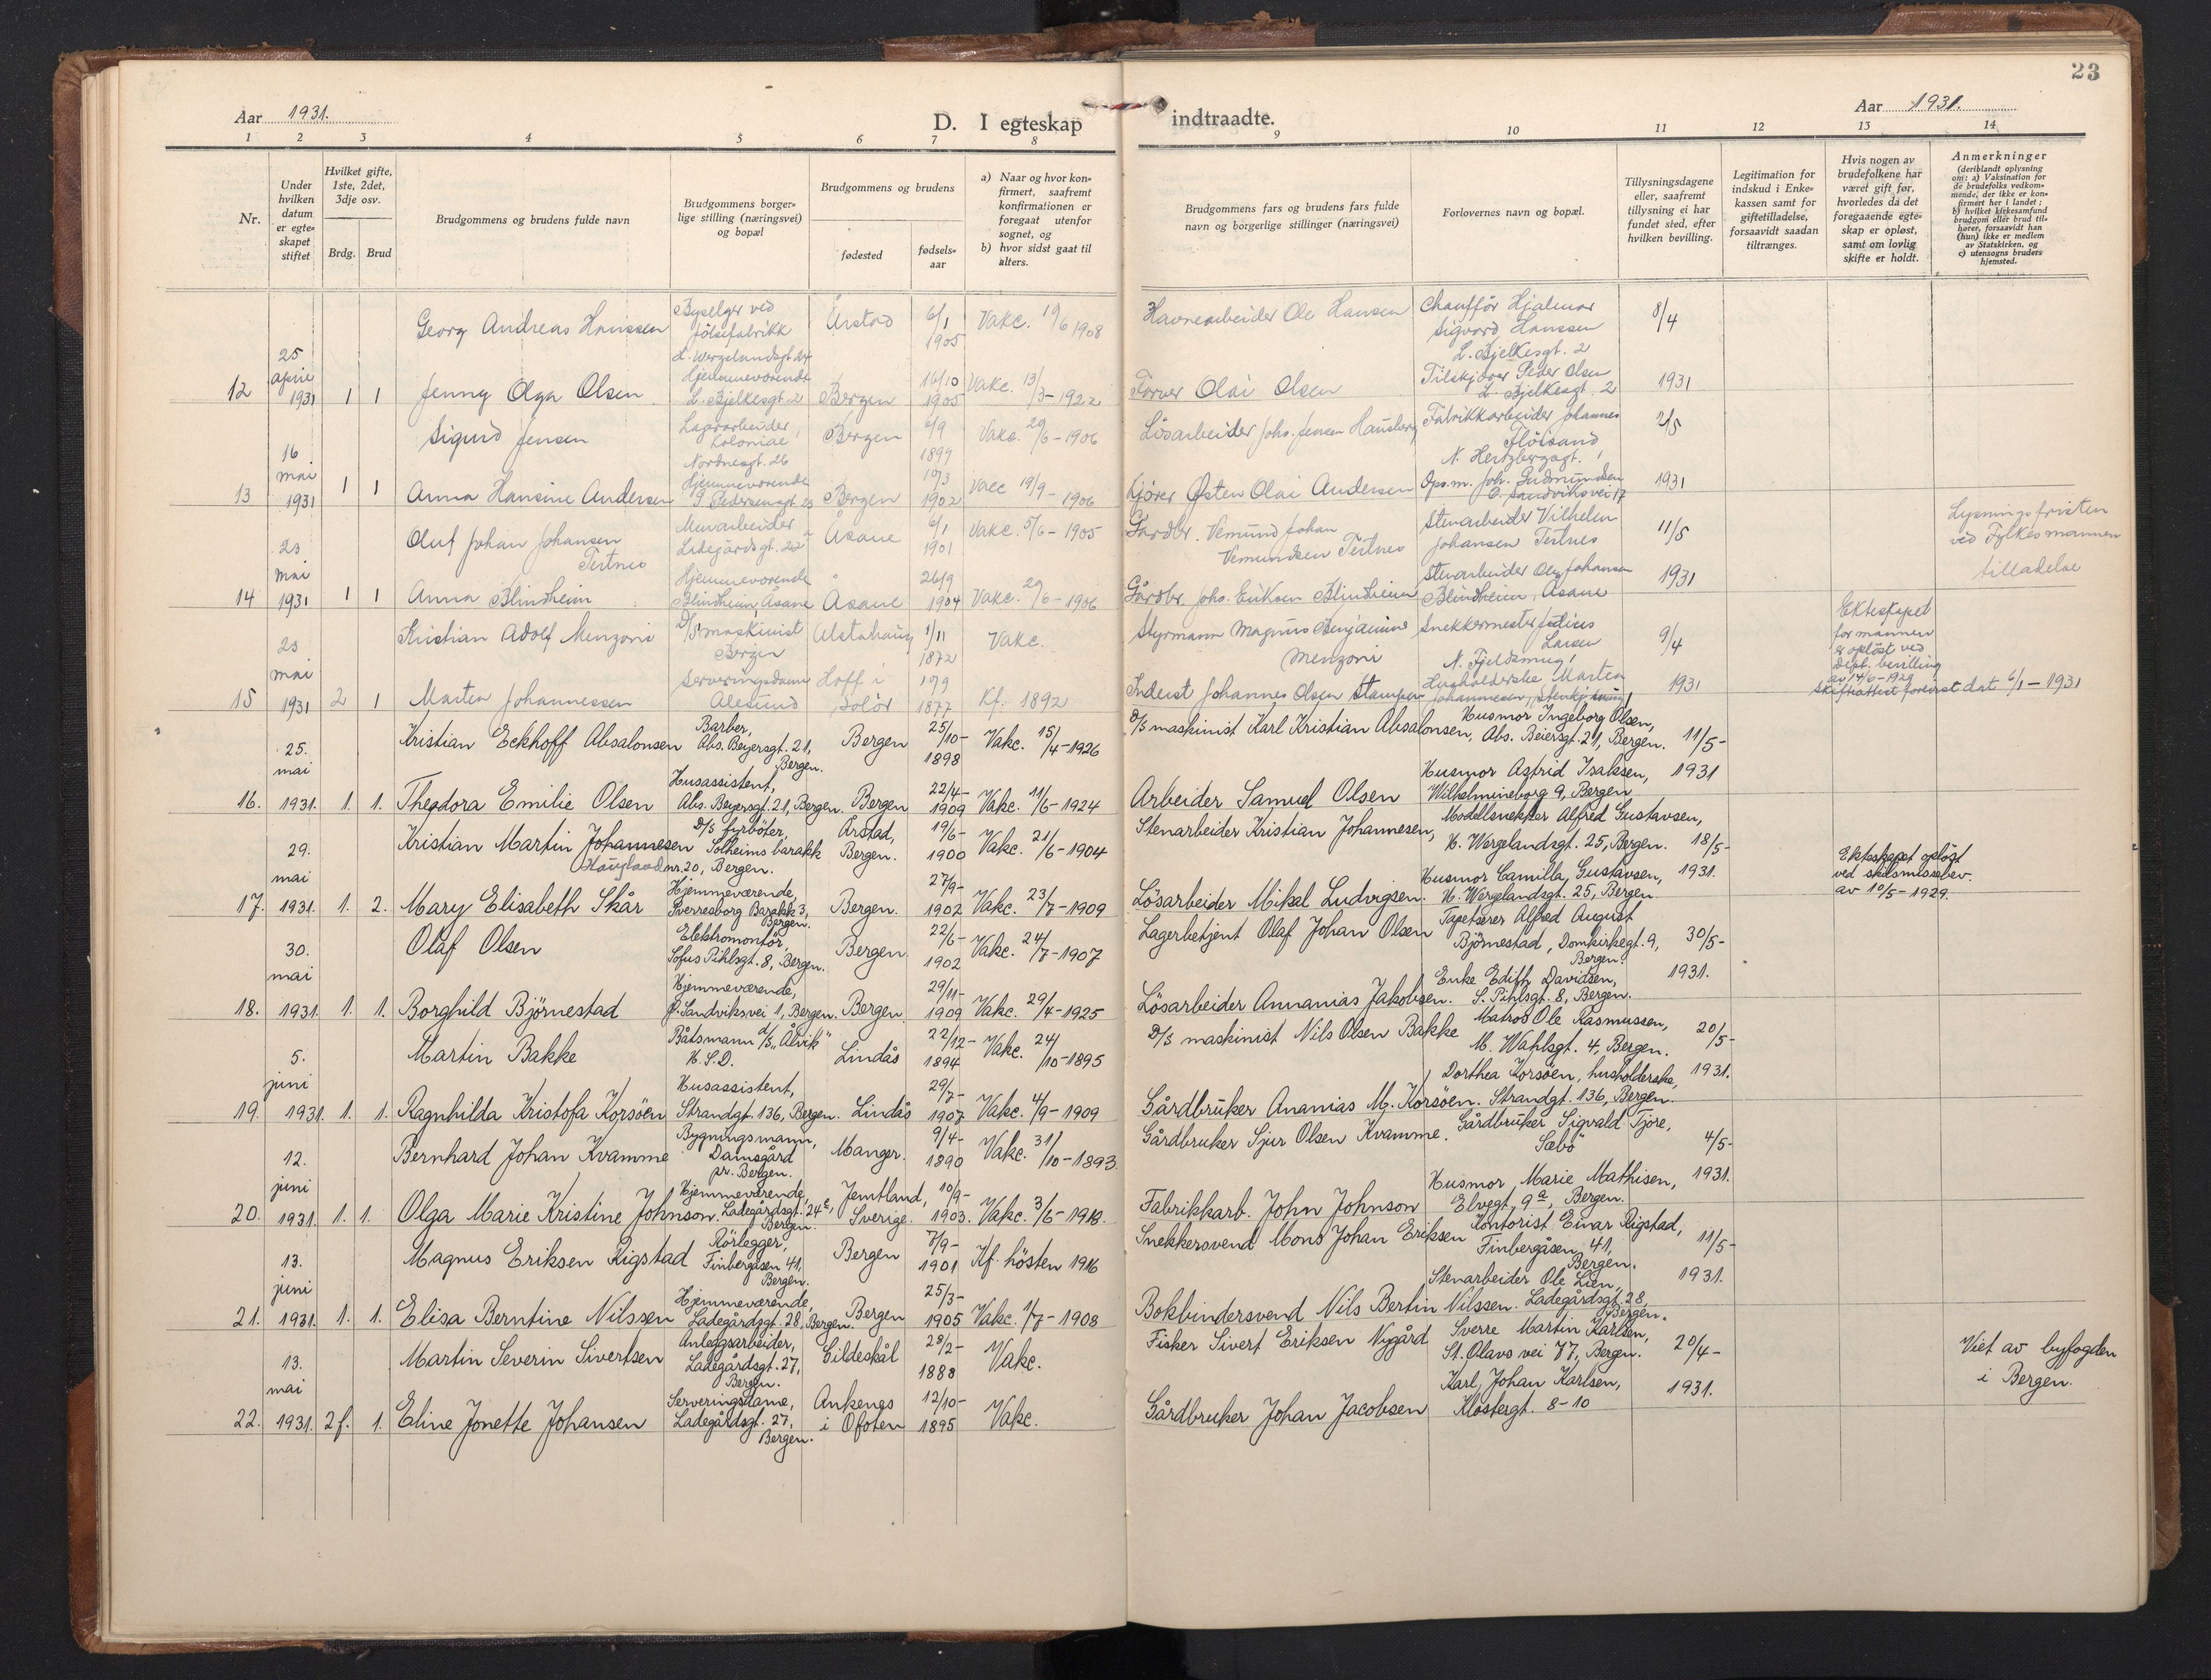 23
Aar 1931.
D. I egteskap indtraadte.
Aar 1931.
1 2 3 4 5 6 7 8 9 10 11 12 13 14
Nr.
Under hvilken datum er egteskapet stiftet
Hvilket gifte, 1ste, 2det, 3dje osv.
Brdg. Brud
Brudgommens og brudens fulde navn
Brudgommens borgerlige stilling (næringsvei) og bopæl
Brudgommens og brudens
fødested
fødselsaar
a) Naar og hvor konfirmert, saafremt konfirmationen er foregaat utenfor sognet, og
b) hvor sidst gaat til alters.
Brudgommens fars og brudens fars fulde navn og borgerlige stillinger (næringsvei)
Forlovernes navn og bopæl.
Tillysningsdagene eller, saafremt tillysning ei har fundet sted, efter hvilken bevilling.
Legitimation for indskud i Enkekassen samt for giftetilladelse, forsaavidt saadan tiltrænges.
Hvis nogen av brudefolkene har været gift før, hvorledes da det foregaaende egteskap er opløst, samt om lovlig skifte er holdt.
Anmerkninger (deriblandt oplysning om: a) Vaksination for de brudefolks vedkommende, der ikke er konfirmert her i landet; b) hvilket kirkesamfund brudgom eller brud tilhører, forsaavidt han (hun) ikke er medlem av Statskirken, og c) utensogns bruders hjemsted.
12 25 april 1931 1 1
Georg Andreas Hanssen
ved fölsefabrikk L. Wergelandsgt 24
Årstad 6/1 1905 Vakc. 19/6 1908
Havnearbeider Ole Hansen
Chaufför Hjalmar Sigvard Hanssen L. Bjelkesgt. 2
8/4
Jenny Olga Olsen
Hjemmeværende L. Bjelkesgt. 2
Bergen 16/10 1905 Vakc. 13/3-1922
Farver Olai Olsen
Peder Olsen L. Bjelkesgt. 2
1931
13 16 mai 1931 1 1
Sigurd Jensen
Lagerarbeider, Nordnesgt. 26
Bergen 6/9 1899 Vakc. 29/6-1906
Lösarbeider Johs. Jensen
Fabrikkarbeider Johannes Flöisand N. Hertzbergsgt. 1
2/5
Anna Hansine Andersen
Hjemmeværende
Bergen 10/3 1902 Vacc 19/9-1906
Kjører Østen Olai Andersen
Ops.m. Joh. Gudmundsen Sandviksvei 17
1931
14 23 mai 1931 1 1
Oluf Johan Johansen Tertnes
Murarbeider Ladegårdsgt. 22
Åsane 6/1 1901 Vakc. 5/6-1905
Gardbr. Vemund Johan Vemundsen Tertnes
Stenarbeider Vilhelm Johansen Tertnes
11/5
Lysningsfristen ved Fylkesmannen tilladelse
Anna Blindheim
Hjemmeværende Blindheim Åsane
Åsane 26/9 1904 Vakc. 29/6-1906
Gårdbr. Johs. Eriksen Blindheim
Stenarbeider Ole Johansen Blindheim, Åsane
1931
15 23 mai 1931 2 1
Kristian Adolf Menzoni
D/S maskinist Bergen
Alstahaug 1/11 1872 Vakc.
Styrmann Magnus Benjamine Menzoni
Snekkermester Larsen N. Fjeldsmug 1
9/4
Ekteskapet for mannen er opløst ved dept. bevilling av 14/6-1929
Skifteattest forevist dat 6/1-1931
Marten Johannessen
Serveringsdame Ålesund
Hoff i Solör 10/9 1877 Kf. 1892
Inderst Johannes Olsen Stampen
Husholderske Marten Johannesen,
1931
16. 25. mai 1931. 1. 1.
Kristian Eckhoff Absalonsen
Barber, Abs. Beyersgt. 21, Bergen.
Bergen 25/10-1898 Vakc. 15/4-1926
D/S maskinist Karl Kristian Absalonsen, Abs. Beiersgt. 21, Bergen.
Husmor Ingeborg Olsen,
11/5-
Theodora Emilie Olsen
Husassistent, Abs. Beyersgt. 21, Bergen.
Bergen 22/4-1909 Vakc. 11/6-1924
Arbeider Samuel Olsen
Husmor Astrid Isaksen, Wilhelmineborg 9, Bergen
1931
17. 29. mai 1931. 1. 2.
Kristian Martin Johannesen Haugland
D/S fyrböter, Solheims barakk nr. 20, Bergen.
Årstad, Bergen. 19/6-1900 Vakc. 21/6-1904
Stenarbeider Kristian Johannesen,
Modellsnekker Alfred Gustavsen, H. Wergelandsgt. 25, Bergen.
18/5-
Ekteskapet opløst ved skilsmissebev. av 10/5-1929.
Mary Elisabeth Skår
Hjemmeværende, Sverresborg Barakk 3, Bergen.
Bergen. 27/9-1902 Vakc. 23/7-1909
Lösarbeider Mikal Ludvigsen.
Husmor Camilla Gustavsen, H. Wergelandsgt. 25, Bergen
1931.
18. 30. mai 1931. 1. 1.
Olaf Olsen
Elektromontör, Sofus Pihlsgt. 8, Bergen.
Bergen. 22/6-1902 Vakc. 24/7-1907
Lagerbetjent Olaf Johan Olsen
Tapetserer Alfred August Björnestad, Domkirkegt. 9, Bergen.
30/5-
Borghild Björnestad
Hjemmeværende, Sandviksvei 1, Bergen.
Bergen. 29/11-1909 Vakc. 29/4-1925
Lösarbeider Annanias Jakobsen.
Enke Edith Davidsen, S. Pihlsgt. 8, Bergen.
1931.
19. 5. juni 1931. 1. 1.
Martin Bakke
Båtsmann d/s "Ålvik" H.S.D.
Lindås 22/12-1894 Vakc. 24/10-1895
D/S maskinist Nils Olsen Bakke
Matros Ole Rasmussen, M. Wahlsgt. 4, Bergen.
20/5-
Ragnhilda Kristofa Korsöen
Husassistent, Strandgt. 136, Bergen.
Lindås 29/7-1907 Vakc. 4/9-1909
Gårdbruker Ananias M. Korsöen.
Dorthea Korsöen, husholderske, Strandgt. 136, Bergen.
1931.
20. 12. juni 1931. 1. 1.
Bernhard Johan Kvamme
Bygningsmann, Damsgård pr. Bergen.
Manger. 9/4-1890 Vakc. 31/10-1893.
Gårdbruker Sjur Olsen Kvamme.
Gårdbruker Sigvald Tjore, Sæbö
4/5-
Olga Marie Kristine Johnson.
Hjemmeværende, Ladegårdsgt. 24c, Bergen.
Jemtland, Sverige. 10/9-1903. Vakc. 3/6-1918.
Fabrikkarb. John Johnson
Husmor Marie Mathisen, Elvegt. 9a, Bergen.
1931.
21. 13. juni 1931. 1. 1.
Magnus Eriksen Rigstad
Rörlegger, Finbergåsen 41, Bergen.
Bergen 7/9-1901 Kf. hösten 1916
Snekkersvend Mons Johan Eriksen
Kontorist Einar Rigstad, Finbergåsen 41, Bergen.
11/5-
Elisa Berntine Nilssen
Hjemmeværende, Ladegårdsgt. 28, Bergen.
Bergen 25/3-1905 Vakc. 1/7-1908
Bokbindersvend Nils Bertin Nilssen.
Stenarbeider Ole Lien, Ladegårdsgt. 28, Bergen.
1931.
22. 13. mai 1931. 2f. 1.
Martin Severin Sivertsen
Anleggsarbeider, Ladegårdsgt. 27, Bergen.
Gildeskål 28/2-1888 Vakc.
Fisker Sivert Eriksen Nygård
Sverre Martin Karlsen, St. Olavs vei 77, Bergen.
20/4-
Viet av byfogden i Bergen.
Eline Jonette Johansen
Serveringsdame, Ladegårdsgt. 27, Bergen.
Ankenes i Ofoten 12/10-1895 Vakc.
Gårdbruker Johan Jacobsen
Karl Johan Karlsen, Klostergt. 8-10
1931.